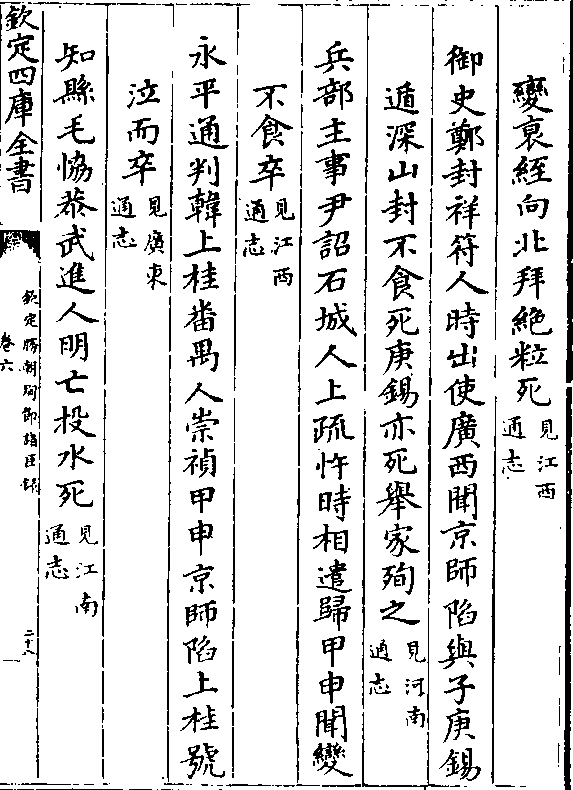 變衰絰向北拜絶粒死見江西通志
御史鄭封祥符人時出使廣西聞京師陷與子庚錫
遁深山封不食死庚錫亦死舉家殉之見河南通志
兵部主事尹詔石城人上疏忤時相遣歸甲申聞變
不食卒見江西通志
永平通判韓上桂番禺人崇禎甲申京師陷上桂號
泣而卒見廣東通志
知縣毛協恭武進人明亡投水死見江南通志
欽定四庫全書
欽定勝朝殉節諸臣録
卷六